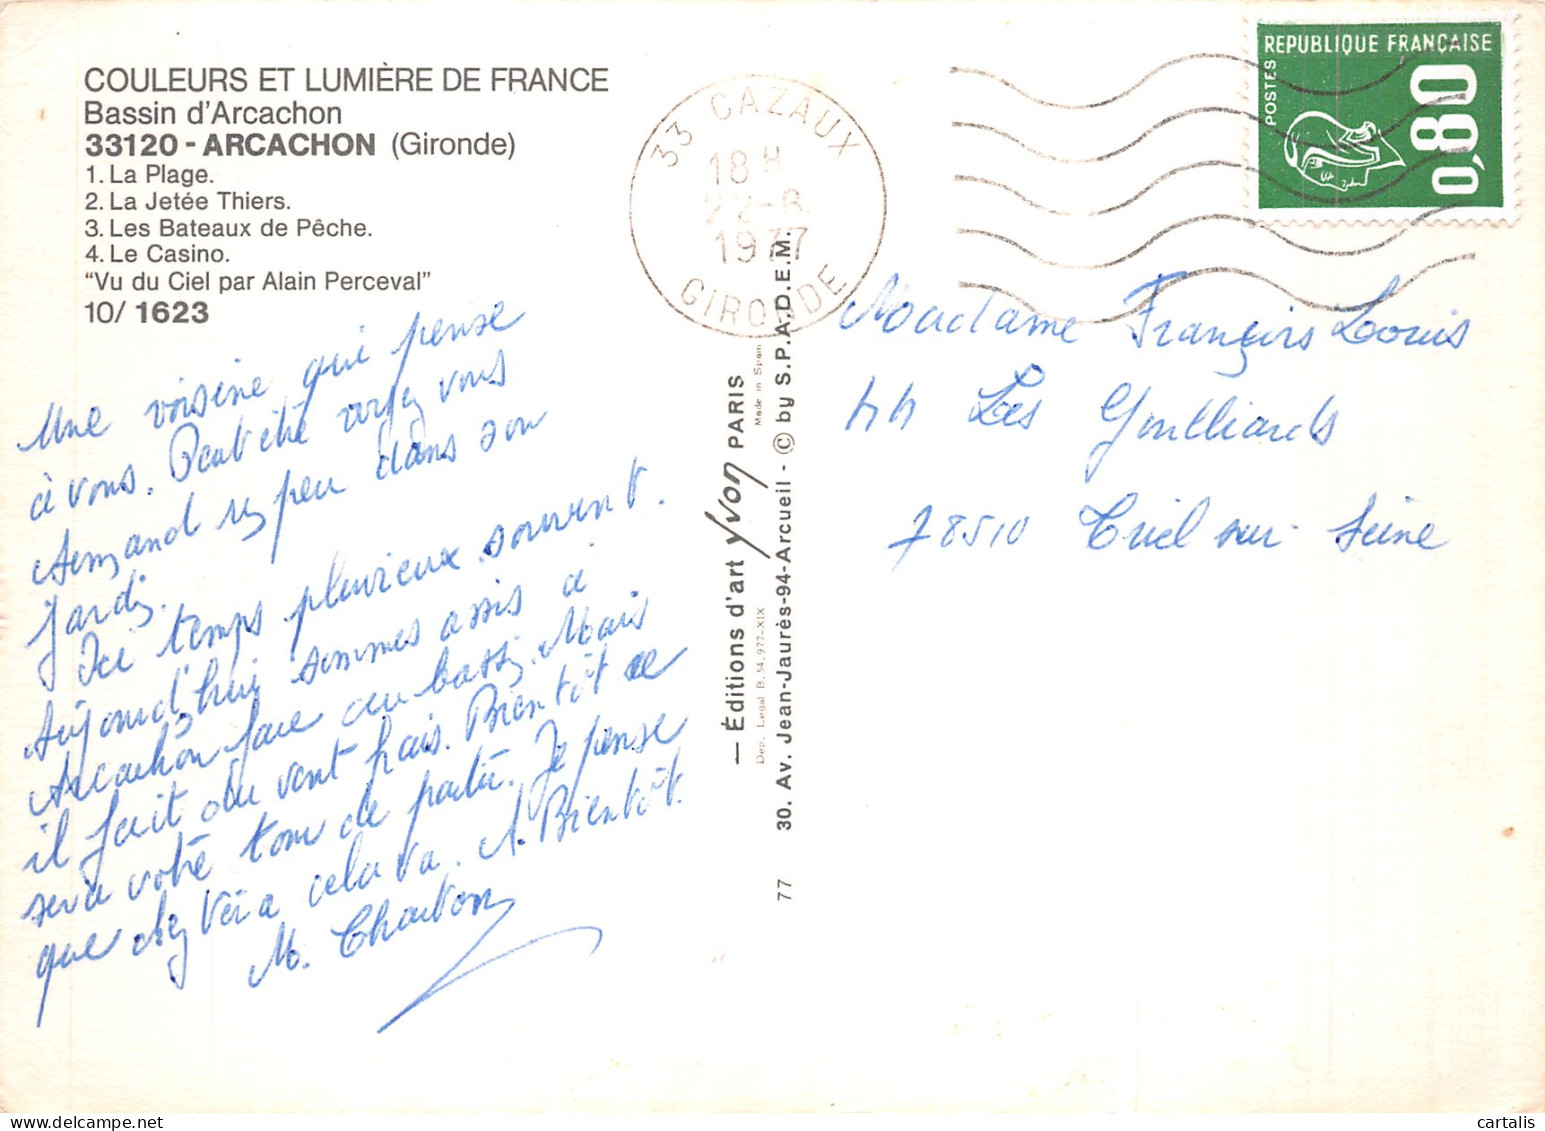 COULEURS ET LUMIÈRE DE FRANCE
Bassin d'Arcachon
33120 - ARCACHON (Gironde)
1. La Plage.
2. La Jetée Thiers.
3. Les Bateaux de Pêche.
4. Le Casino.
"Vu du Ciel par Alain Perceval"
10/ 1623
33 CAZAUX
18 H
22-8
1977
GIRONDE
REPUBLIQUE FRANÇAISE
POSTES
0,80
Une voisine qui pense
à vous. Peut être voyez vous
Armand un peu dans son
Jardin.
Ici temps pluvieux souvent.
Aujourd'hui sommes assis à
Arcachon face au bassin. Mais
il fait du vent frais. Bientôt ce
sera votre tour de partir. Je pense
que chez cela va. A. Bientôt.
M. Charbon
— Éditions d'art Yvon PARIS
Made in Spain
Dep. Legal B. 54.977-XIX
30. Av. Jean-Jaurès-94-Arcueil - © by S.P.A.D.E.M.
77
Madame François Louis
44 Les Gouilliards
78510 Triel sur Seine
cartalis